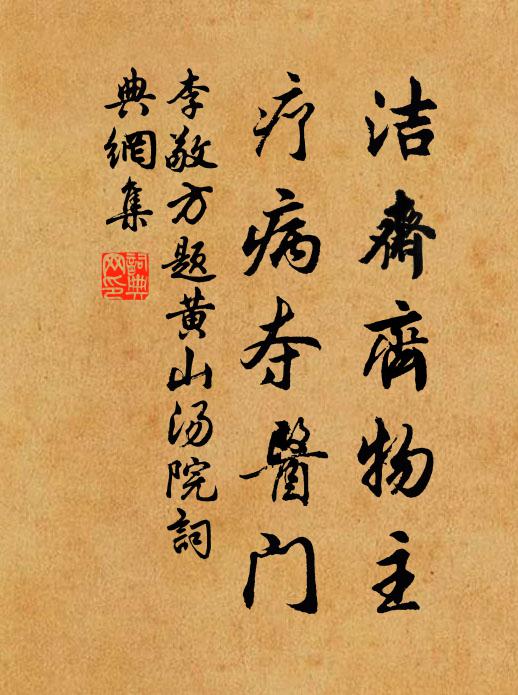 洁齋齊物主
疗病夺醫门
李敬方题黄山汤院詞
典網集
詞典
网印